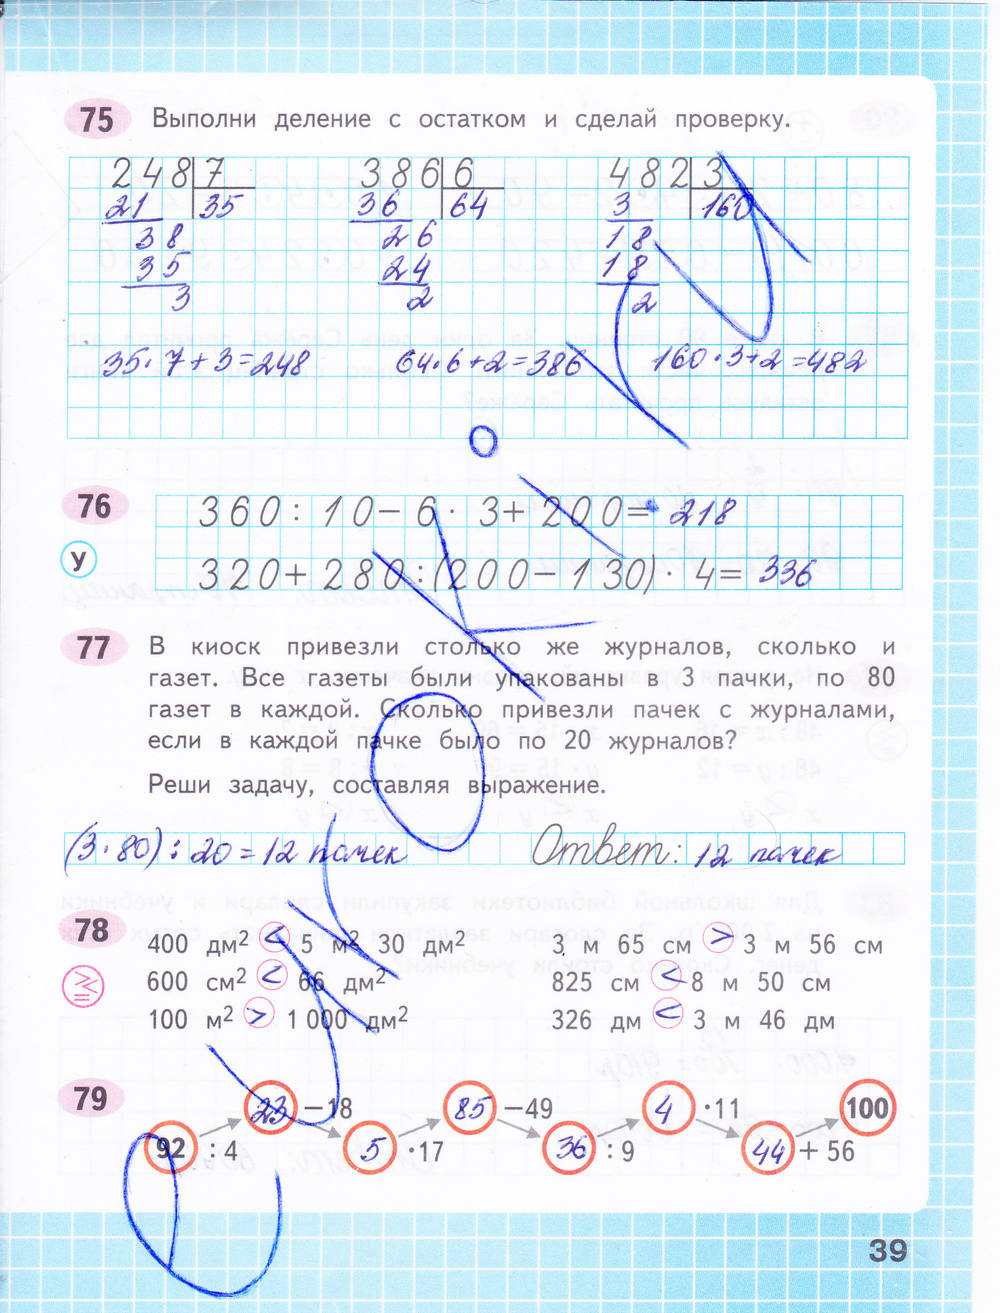 75 Выполни деление с остатком и сделай проверку.
248 7 386 6 482 3
21 35 36 64 3 160
38 26 18
35 24 18
3 2 2
35·7+3=248 64·6+2=386 160·3+2=482
76 360 : 10 – 6 · 3 + 200 = 218
У 320 + 280 : (200 – 130) · 4 = 336
77 В киоск привезли столько же журналов, сколько и
газет. Все газеты были упакованы в 3 пачки, по 80
газет в каждой. Сколько привезли пачек с журналами,
если в каждой пачке было по 20 журналов?
Реши задачу, составляя выражение.
(3·80) : 20 = 12 пачек Ответ: 12 пачек
78 400 дм² < 5 м² 30 дм² 3 м 65 см > 3 м 56 см
600 см² < 66 дм² 825 см < 8 м 50 см
100 м² > 1 000 дм² 326 дм < 3 м 46 дм
79 23 –18 85 –49 4 ·11 100
92 : 4 5 ·17 36 : 9 44 + 56
39